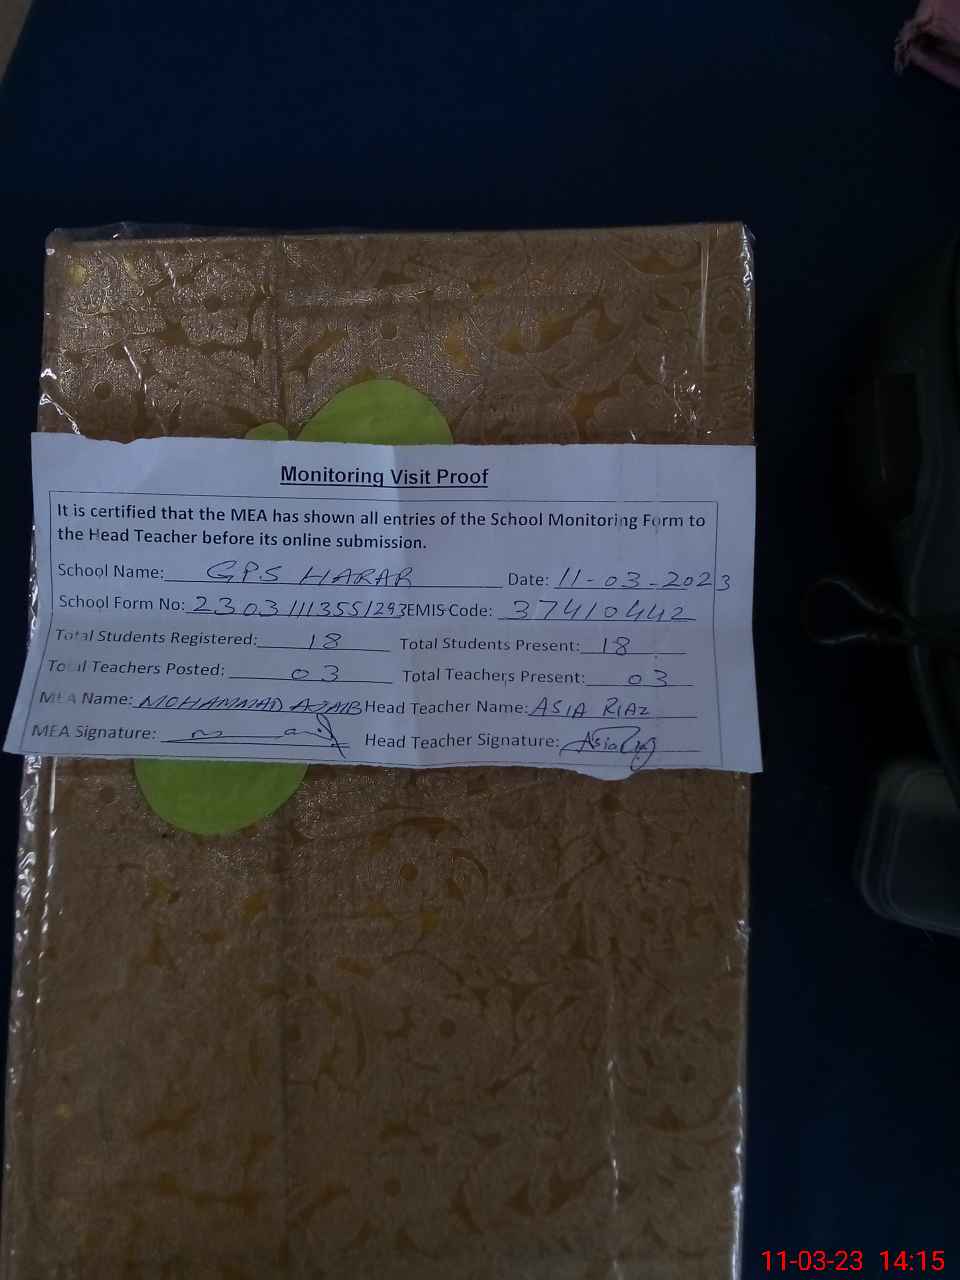 Monitoring Visit Proof
It is certified that the MEA has shown all entries of the School Monitoring Form to
the Head Teacher before its online submission.
School Name: GPS HARAR Date: 11-03-2023
School Form No: 23031113551293 EMIS Code: 37410442
Total Students Registered: 18 Total Students Present: 18
Total Teachers Posted: 03 Total Teachers Present: 03
MEA Name: MOHAMMAD AJAIB Head Teacher Name: ASIA RIAZ
MEA Signature: Head Teacher Signature: Asia Riaz
11-03-23 14:15